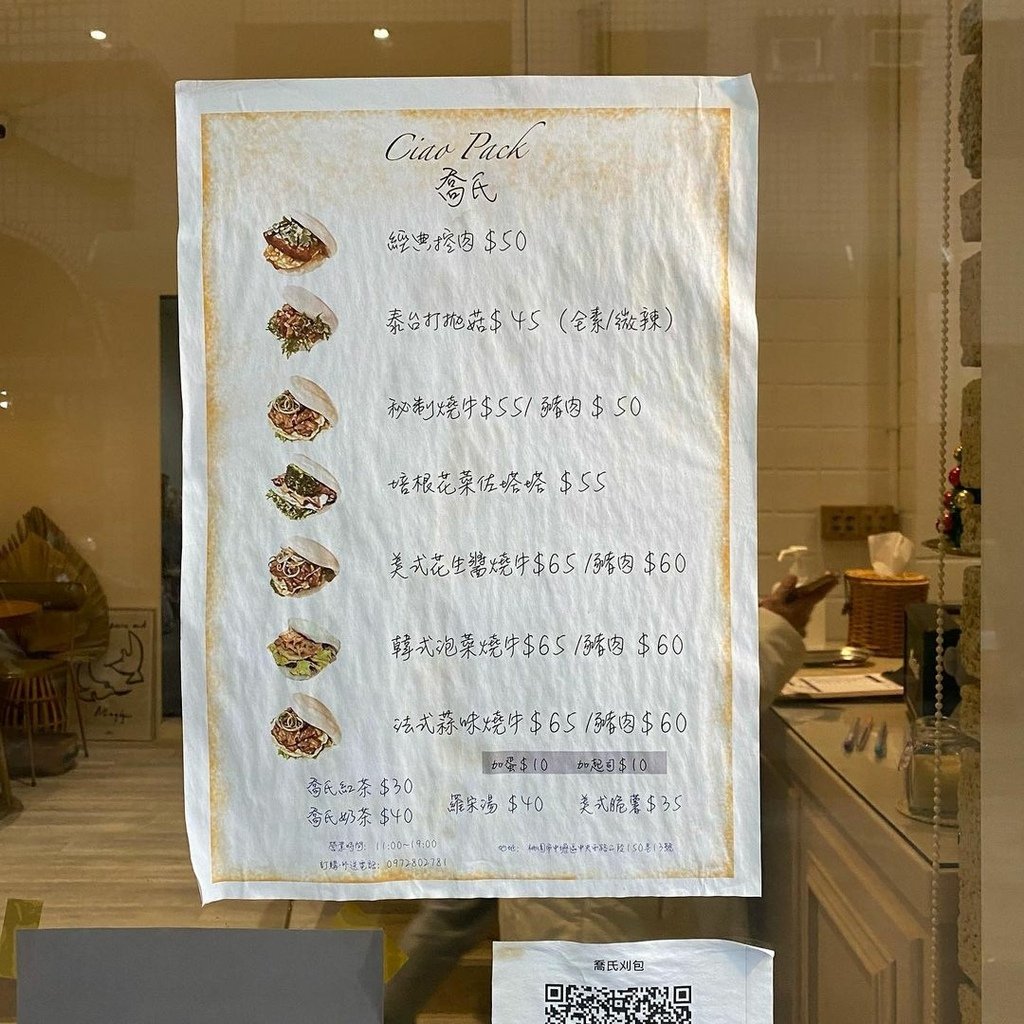 Ciao Pack
喬氏
經典控肉 $50
泰台打拋菇 $45 (全素/微辣)
秘制燒牛 $55/豬肉 $50
培根花菜佐塔塔 $55
美式花生醬燒牛 $65/豬肉 $60
韓式泡菜燒牛 $65/豬肉 $60
法式蒜味燒牛 $65/豬肉 $60
加蛋 $10 加起司 $10
喬氏紅茶 $30
喬氏奶茶 $40 羅宋湯 $40 美式脆薯 $35
營業時間: 11:00~19:00
訂購·外送電話: 0972802781
地址: 桃園市中壢區中央西路二段150巷13號
喬氏刈包